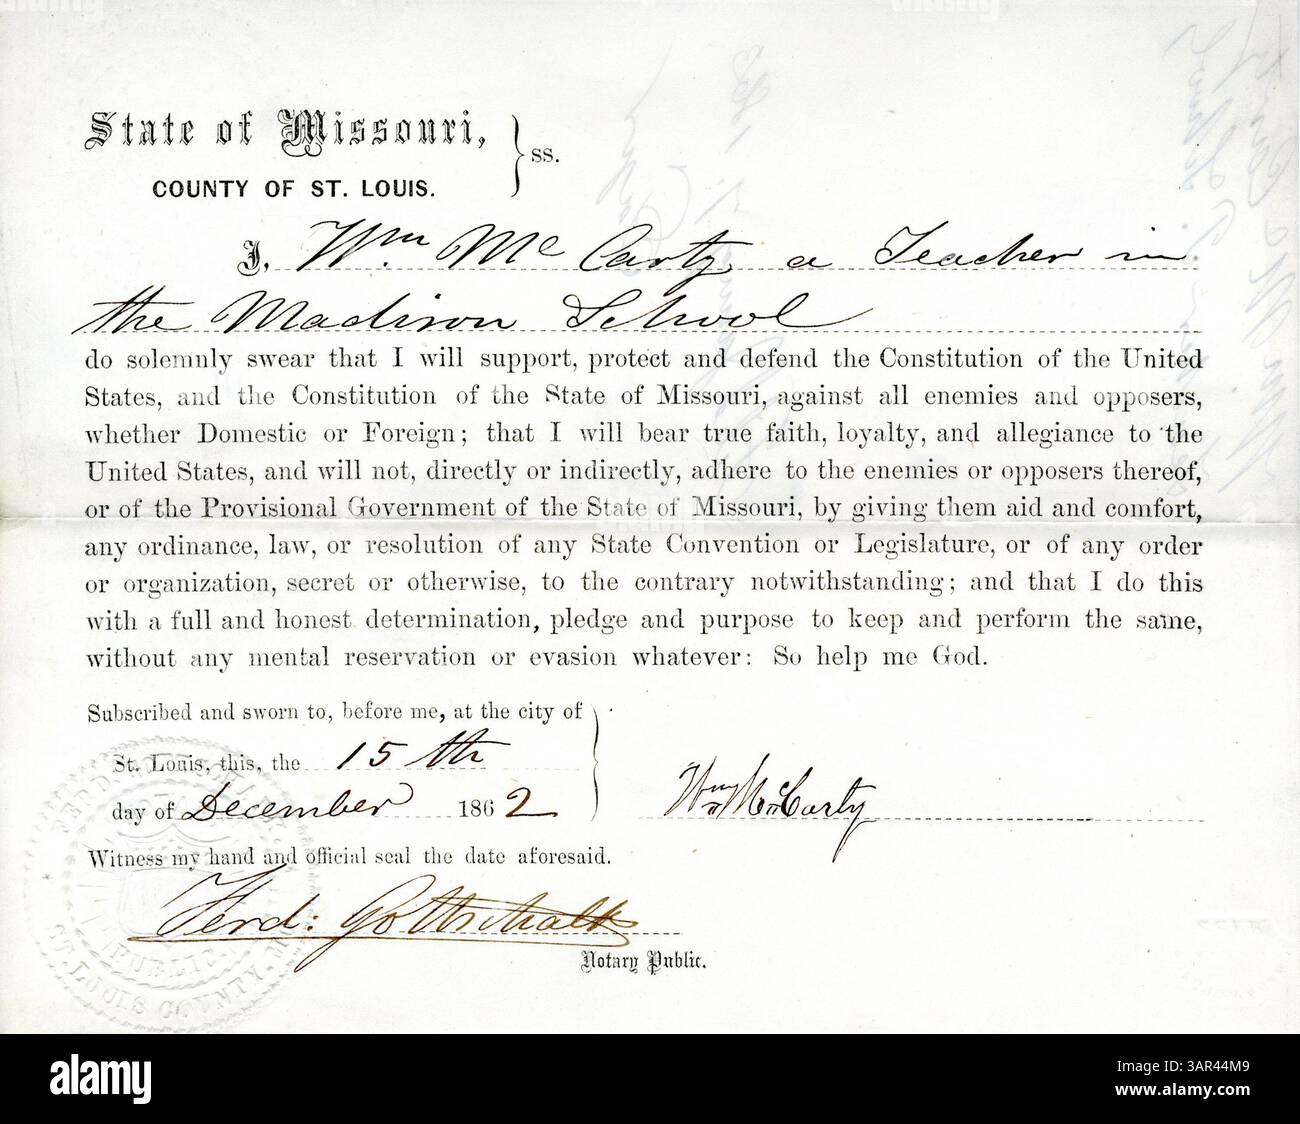 State of Missouri,
COUNTY OF ST. LOUIS.
ss.
I, Wm Mc Carty a Teacher in
the Madison School
do solemnly swear that I will support, protect and defend the Constitution of the United
States, and the Constitution of the State of Missouri, against all enemies and opposers,
whether Domestic or Foreign; that I will bear true faith, loyalty, and allegiance to the
United States, and will not, directly or indirectly, adhere to the enemies or opposers thereof,
or of the Provisional Government of the State of Missouri, by giving them aid and comfort,
any ordinance, law, or resolution of any State Convention or Legislature, or of any order
or organization, secret or otherwise, to the contrary notwithstanding; and that I do this
with a full and honest determination, pledge and purpose to keep and perform the same,
without any mental reservation or evasion whatever: So help me God.
Subscribed and sworn to, before me, at the city of
St. Louis, this, the 15th
day of December 1862
Wm McCarty
Witness my hand and official seal the date aforesaid.
Ferd: Gottschalk
Notary Public.
PUBLIC.
ST. LOUIS COUNTY, MO.
alamy
Image ID: 3AR44M9
www.alamy.com